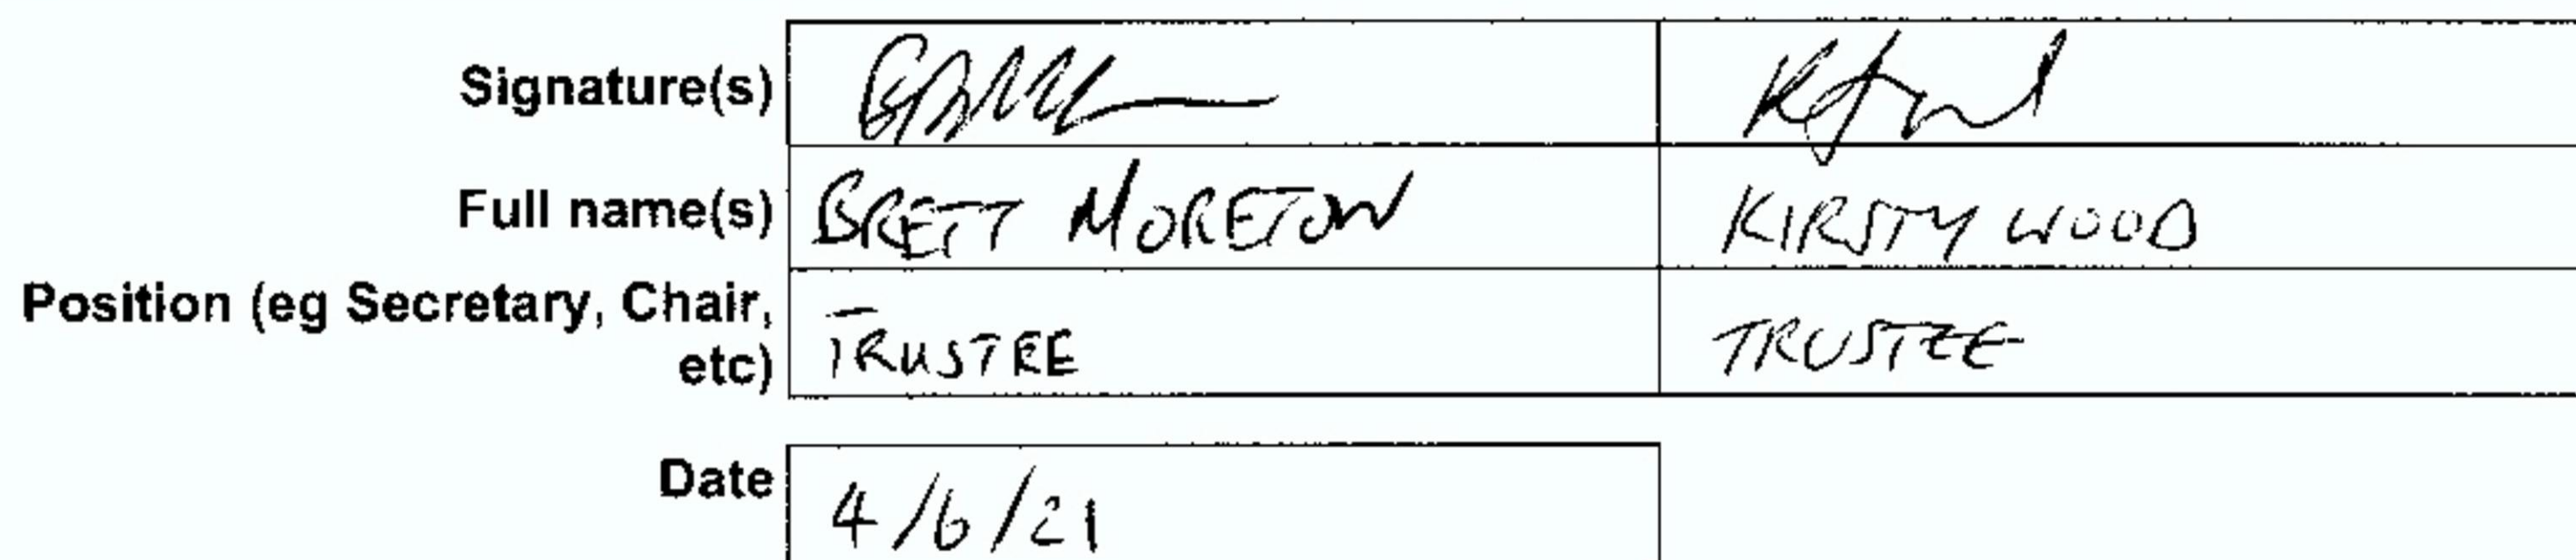 Signature(s)
Full name(s) BRETT MORETON KIRSTY WOOD
Position (eg Secretary, Chair, TRUSTEE TRUSTEE
etc)
Date 4/6/21